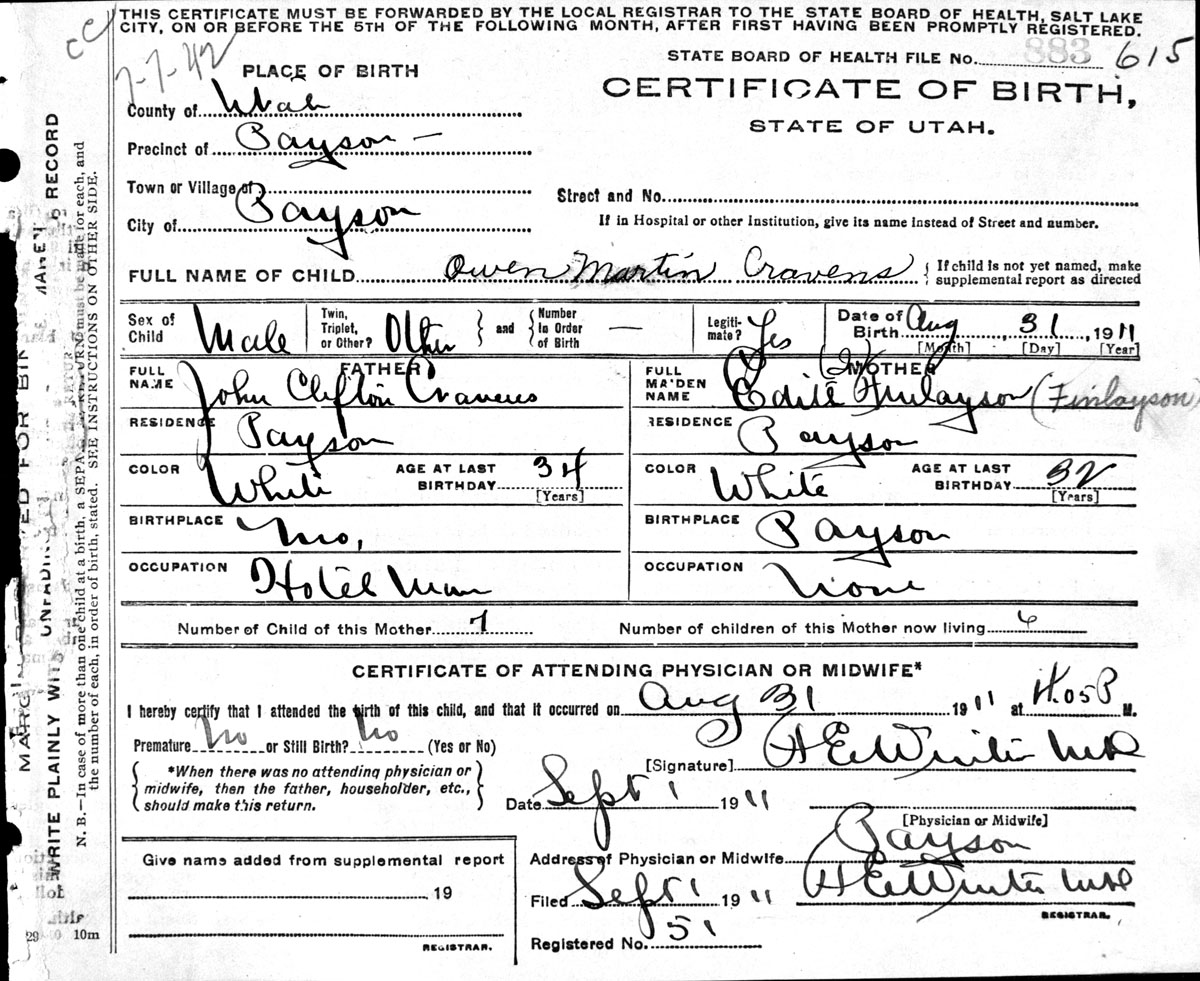 THIS CERTIFICATE MUST BE FORWARDED BY THE LOCAL REGISTRAR TO THE STATE BOARD OF HEALTH, SALT LAKE
CITY, ON OR BEFORE THE 5TH OF THE FOLLOWING MONTH, AFTER FIRST HAVING BEEN PROMPTLY REGISTERED.
7-7-42
STATE BOARD OF HEALTH FILE No. 883 615
PLACE OF BIRTH
CERTIFICATE OF BIRTH,
STATE OF UTAH.
County of Utah
Precinct of Payson
Town or Village of
Street and No.
City of Payson
If in Hospital or other Institution, give its name instead of Street and number.
FULL NAME OF CHILD Owen Martin Cravens { If child is not yet named, make
supplemental report as directed
Sex of Child Male Twin, Triplet, or Other? Other } and { Number in Order of Birth — Legiti- mate? Yes Date of Birth Aug 31, 1911
[Month] [Day] [Year]
FATHER
FULL NAME John Clifton Cravens
MOTHER
FULL MAIDEN NAME Edith Finlayson (Finlayson)
RESIDENCE Payson
RESIDENCE Payson
COLOR White AGE AT LAST BIRTHDAY 34 [Years]
COLOR White AGE AT LAST BIRTHDAY 32 [Years]
BIRTHPLACE Mo.
BIRTHPLACE Payson
OCCUPATION Hotel Man
OCCUPATION None
Number of Child of this Mother 7 Number of children of this Mother now living 6
CERTIFICATE OF ATTENDING PHYSICIAN OR MIDWIFE*
I hereby certify that I attended the birth of this child, and that it occurred on Aug 31 1911 at M.
Premature No or Still Birth? No (Yes or No)
[Signature]
{ *When there was no attending physician or
midwife, then the father, householder, etc.,
should make this return. }
Date Sept 1 1911
[Physician or Midwife]
Address of Physician or Midwife Payson
Filed Sept 1 1911
REGISTRAR.
Registered No. 51
Give name added from supplemental report
19
REGISTRAR.
WRITE PLAINLY WITH UNFADING
N. B.—In case of more than one child at a birth, a must be made for each, and
the number of each, in order of birth, stated. SEE INSTRUCTIONS ON OTHER SIDE.
29 10m